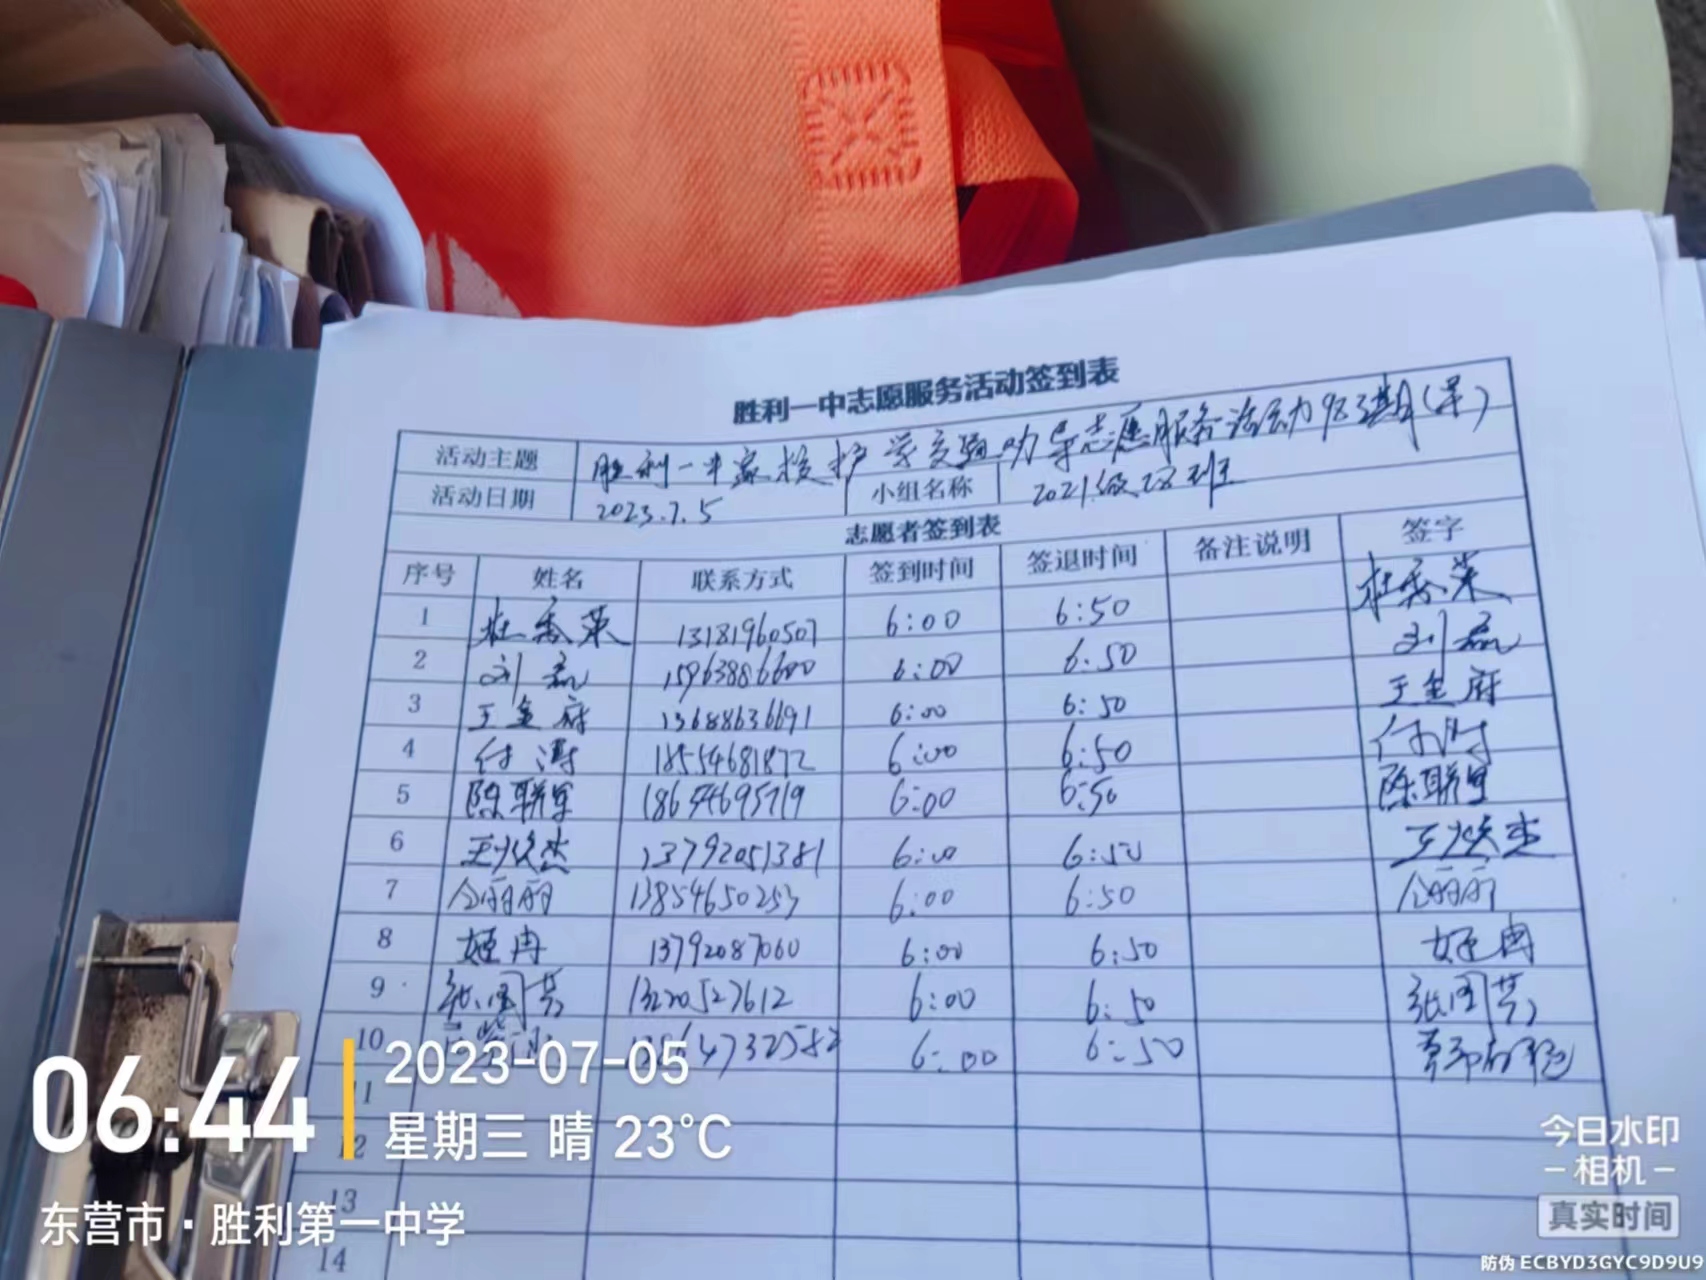 胜利一中志愿服务活动签到表
活动主题 胜利一中家校护学交通助导志愿服务活动983期(早)
活动日期 2023.7.5 小组名称 2021级28班
志愿者签到表
序号 姓名 联系方式 签到时间 签退时间 备注说明 签字
1 杜秀英 13181960507 6:00 6:50 杜秀英
2 刘磊 15963886600 6:00 6:50 刘磊
3 王金府 13688636691 6:00 6:50 王金府
4 付涛 18554681872 6:00 6:50 付涛
5 陈联军 18654695719 6:00 6:50 陈联军
6 13792051381 6:00 6:50
7 丽丽 13854650253 6:00 6:50 丽丽
8 姬冉 13792087060 6:00 6:50 姬冉
9 张国芳 13220527612 6:00 6:50 张国芳
10 6:00 6:50
11
12
13
14
06:44
2023-07-05
星期三 晴 23°C
东营市·胜利第一中学
今日水印
-相机-
真实时间
防伪 ECBYD3GYC9D9U9